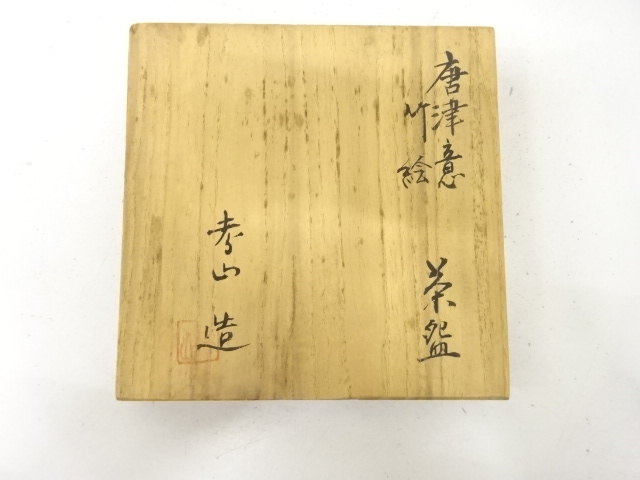 唐津意
竹絵
茶盌
孝山 造